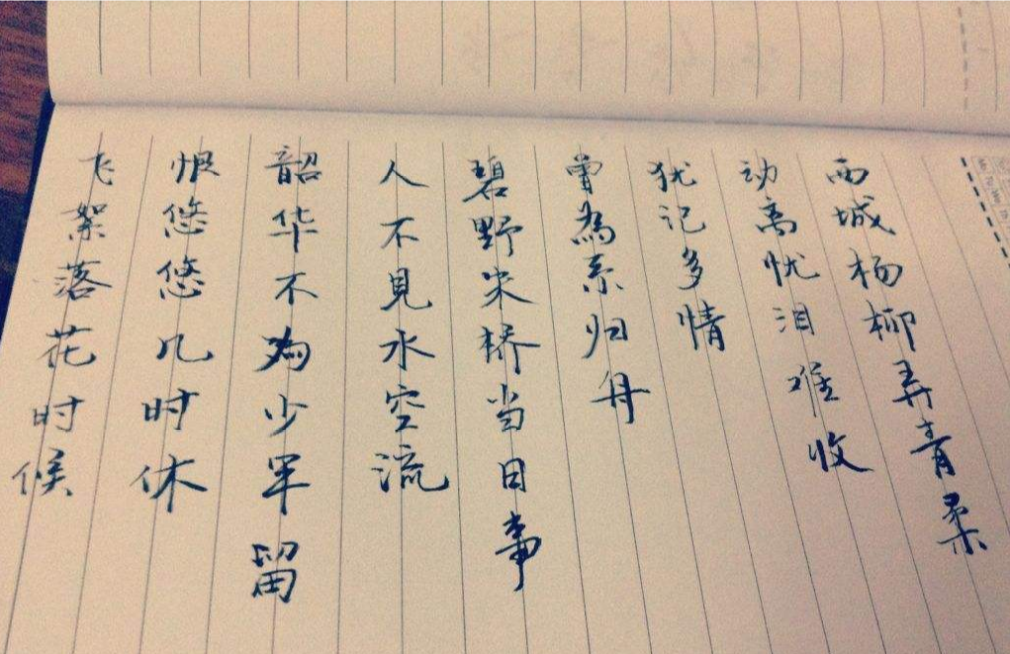 西城杨柳弄青柔
动离忧泪难收
犹记多情
曾為系归舟
碧野朱桥当日事
人不見水空流
韶华不为少年留
恨悠悠几时休
飞絮落花时候